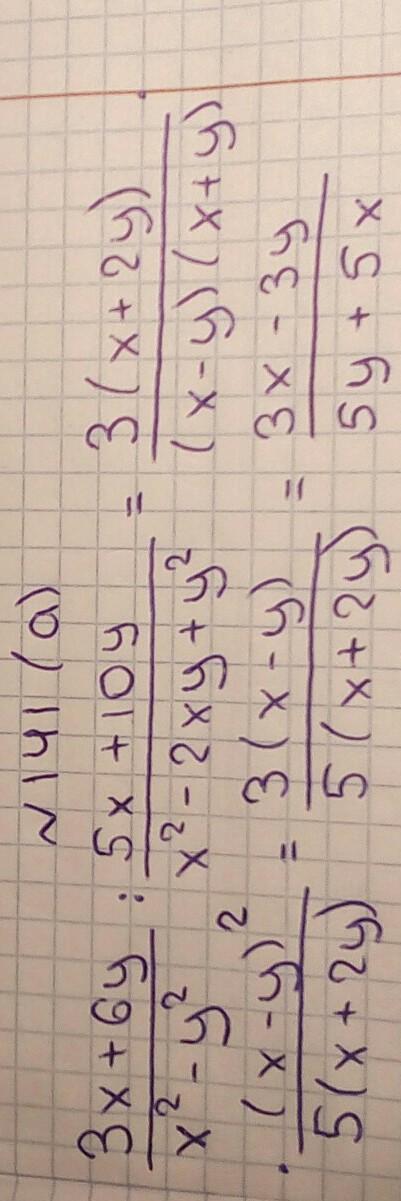 N 141 (a)
3x + 6y / x² - y² : 5x + 10y / x² - 2xy + y² = 3(x + 2y) / (x - y)(x + y) ·
· (x - y)² / 5(x + 2y) = 3(x - y) / 5(x + 2y) = 3x - 3y / 5y + 5x